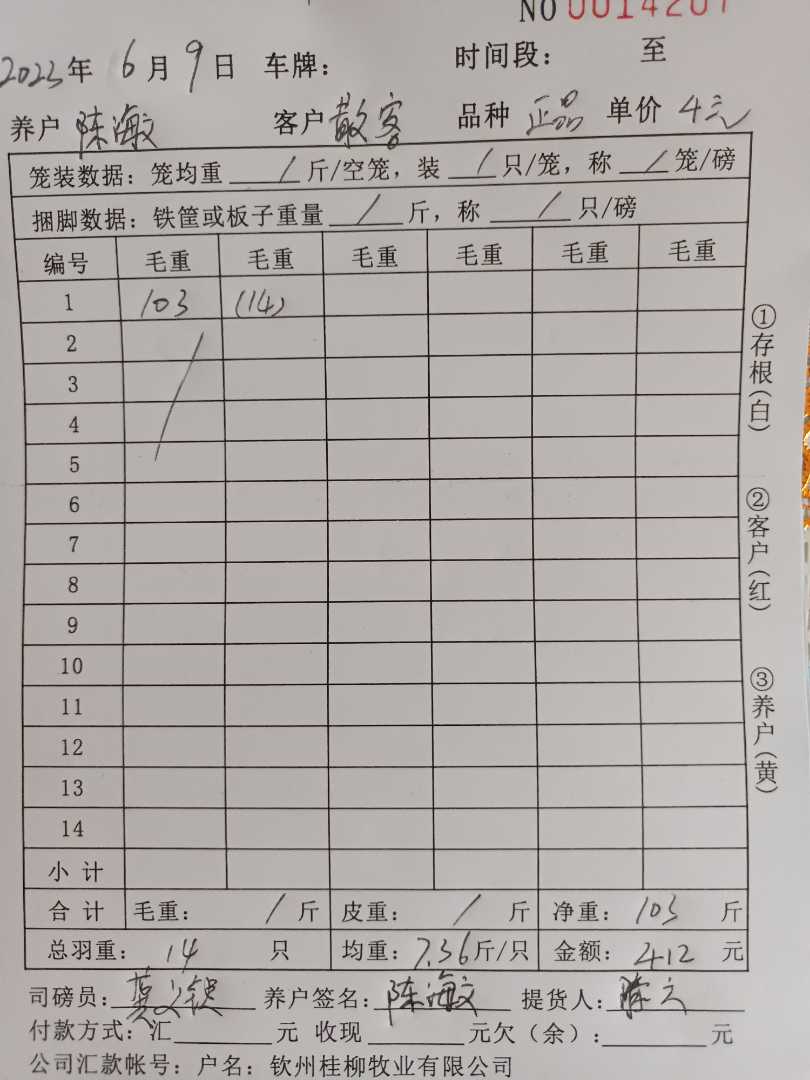 NO 0014207
2023年 6月 9日 车牌: 时间段: 至
养户 陈海文 客户 散客 品种 正品 单价 4元
笼装数据: 笼均重 / 斤/空笼, 装 / 只/笼, 称 / 笼/磅
捆脚数据: 铁筐或板子重量 / 斤, 称 / 只/磅
编号 毛重 毛重 毛重 毛重 毛重 毛重
1 103 (14)
2
3
4
5
6
7
8
9
10
11
12
13
14
小计
合计 毛重: / 斤 皮重: / 斤 净重: 103 斤
总羽重: 14 只 均重: 7.36 斤/只 金额: 412 元
司磅员: 养户签名: 陈海文 提货人:
付款方式: 汇 元 收现 元欠(余): 元
公司汇款帐号: 户名: 钦州桂柳牧业有限公司
①存根(白)
②客户(红)
③养户(黄)